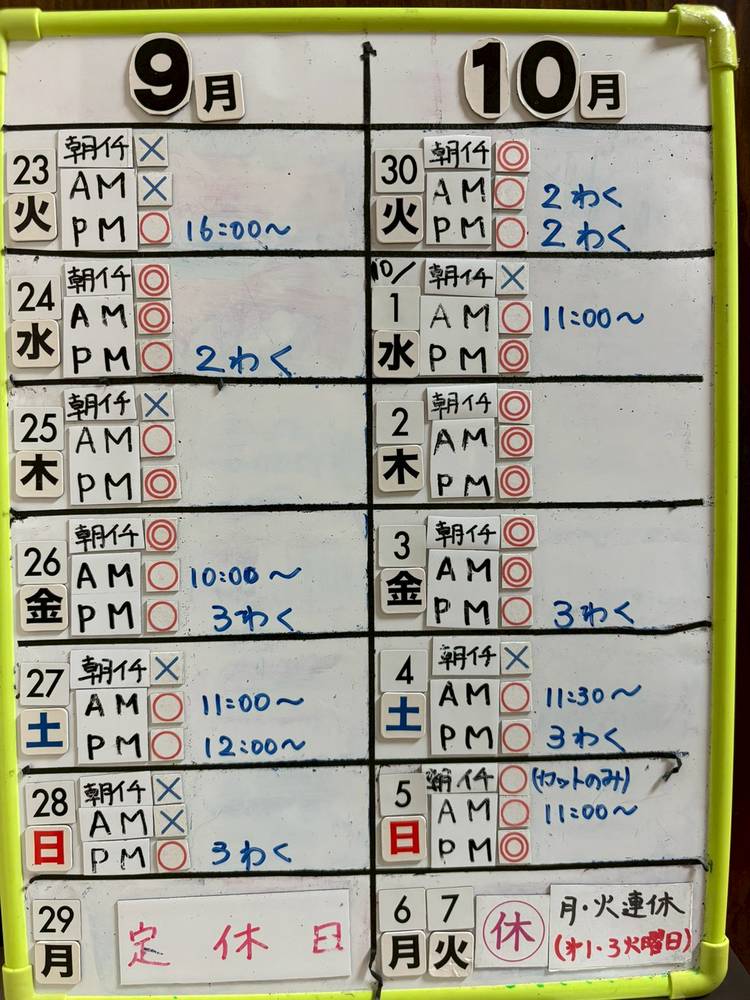 9月
23
火
朝イチ ×
AM ×
PM ○ 16:00〜
24
水
朝イチ ◎
AM ◎
PM ○ 2わく
25
木
朝イチ ×
AM ○
PM ◎
26
金
朝イチ ◎
AM ○ 10:00〜
PM ○ 3わく
27
土
朝イチ ×
AM ○ 11:00〜
PM ○ 12:00〜
28
日
朝イチ ×
AM ×
PM ○ 3わく
29
月
定休日
10月
30
火
朝イチ ◎
AM ○ 2わく
PM ○ 2わく
10/
1
水
朝イチ ×
AM ○ 11:00〜
PM ◎
2
木
朝イチ ◎
AM ◎
PM ◎
3
金
朝イチ ◎
AM ◎
PM ○ 3わく
4
土
朝イチ ×
AM ○ 11:30〜
PM ○ 3わく
5
日
朝イチ ○ (カットのみ)
AM ○ 11:00〜
PM ◎
6 7
月 火
休
月・火連休
(㐧1・3火曜日)